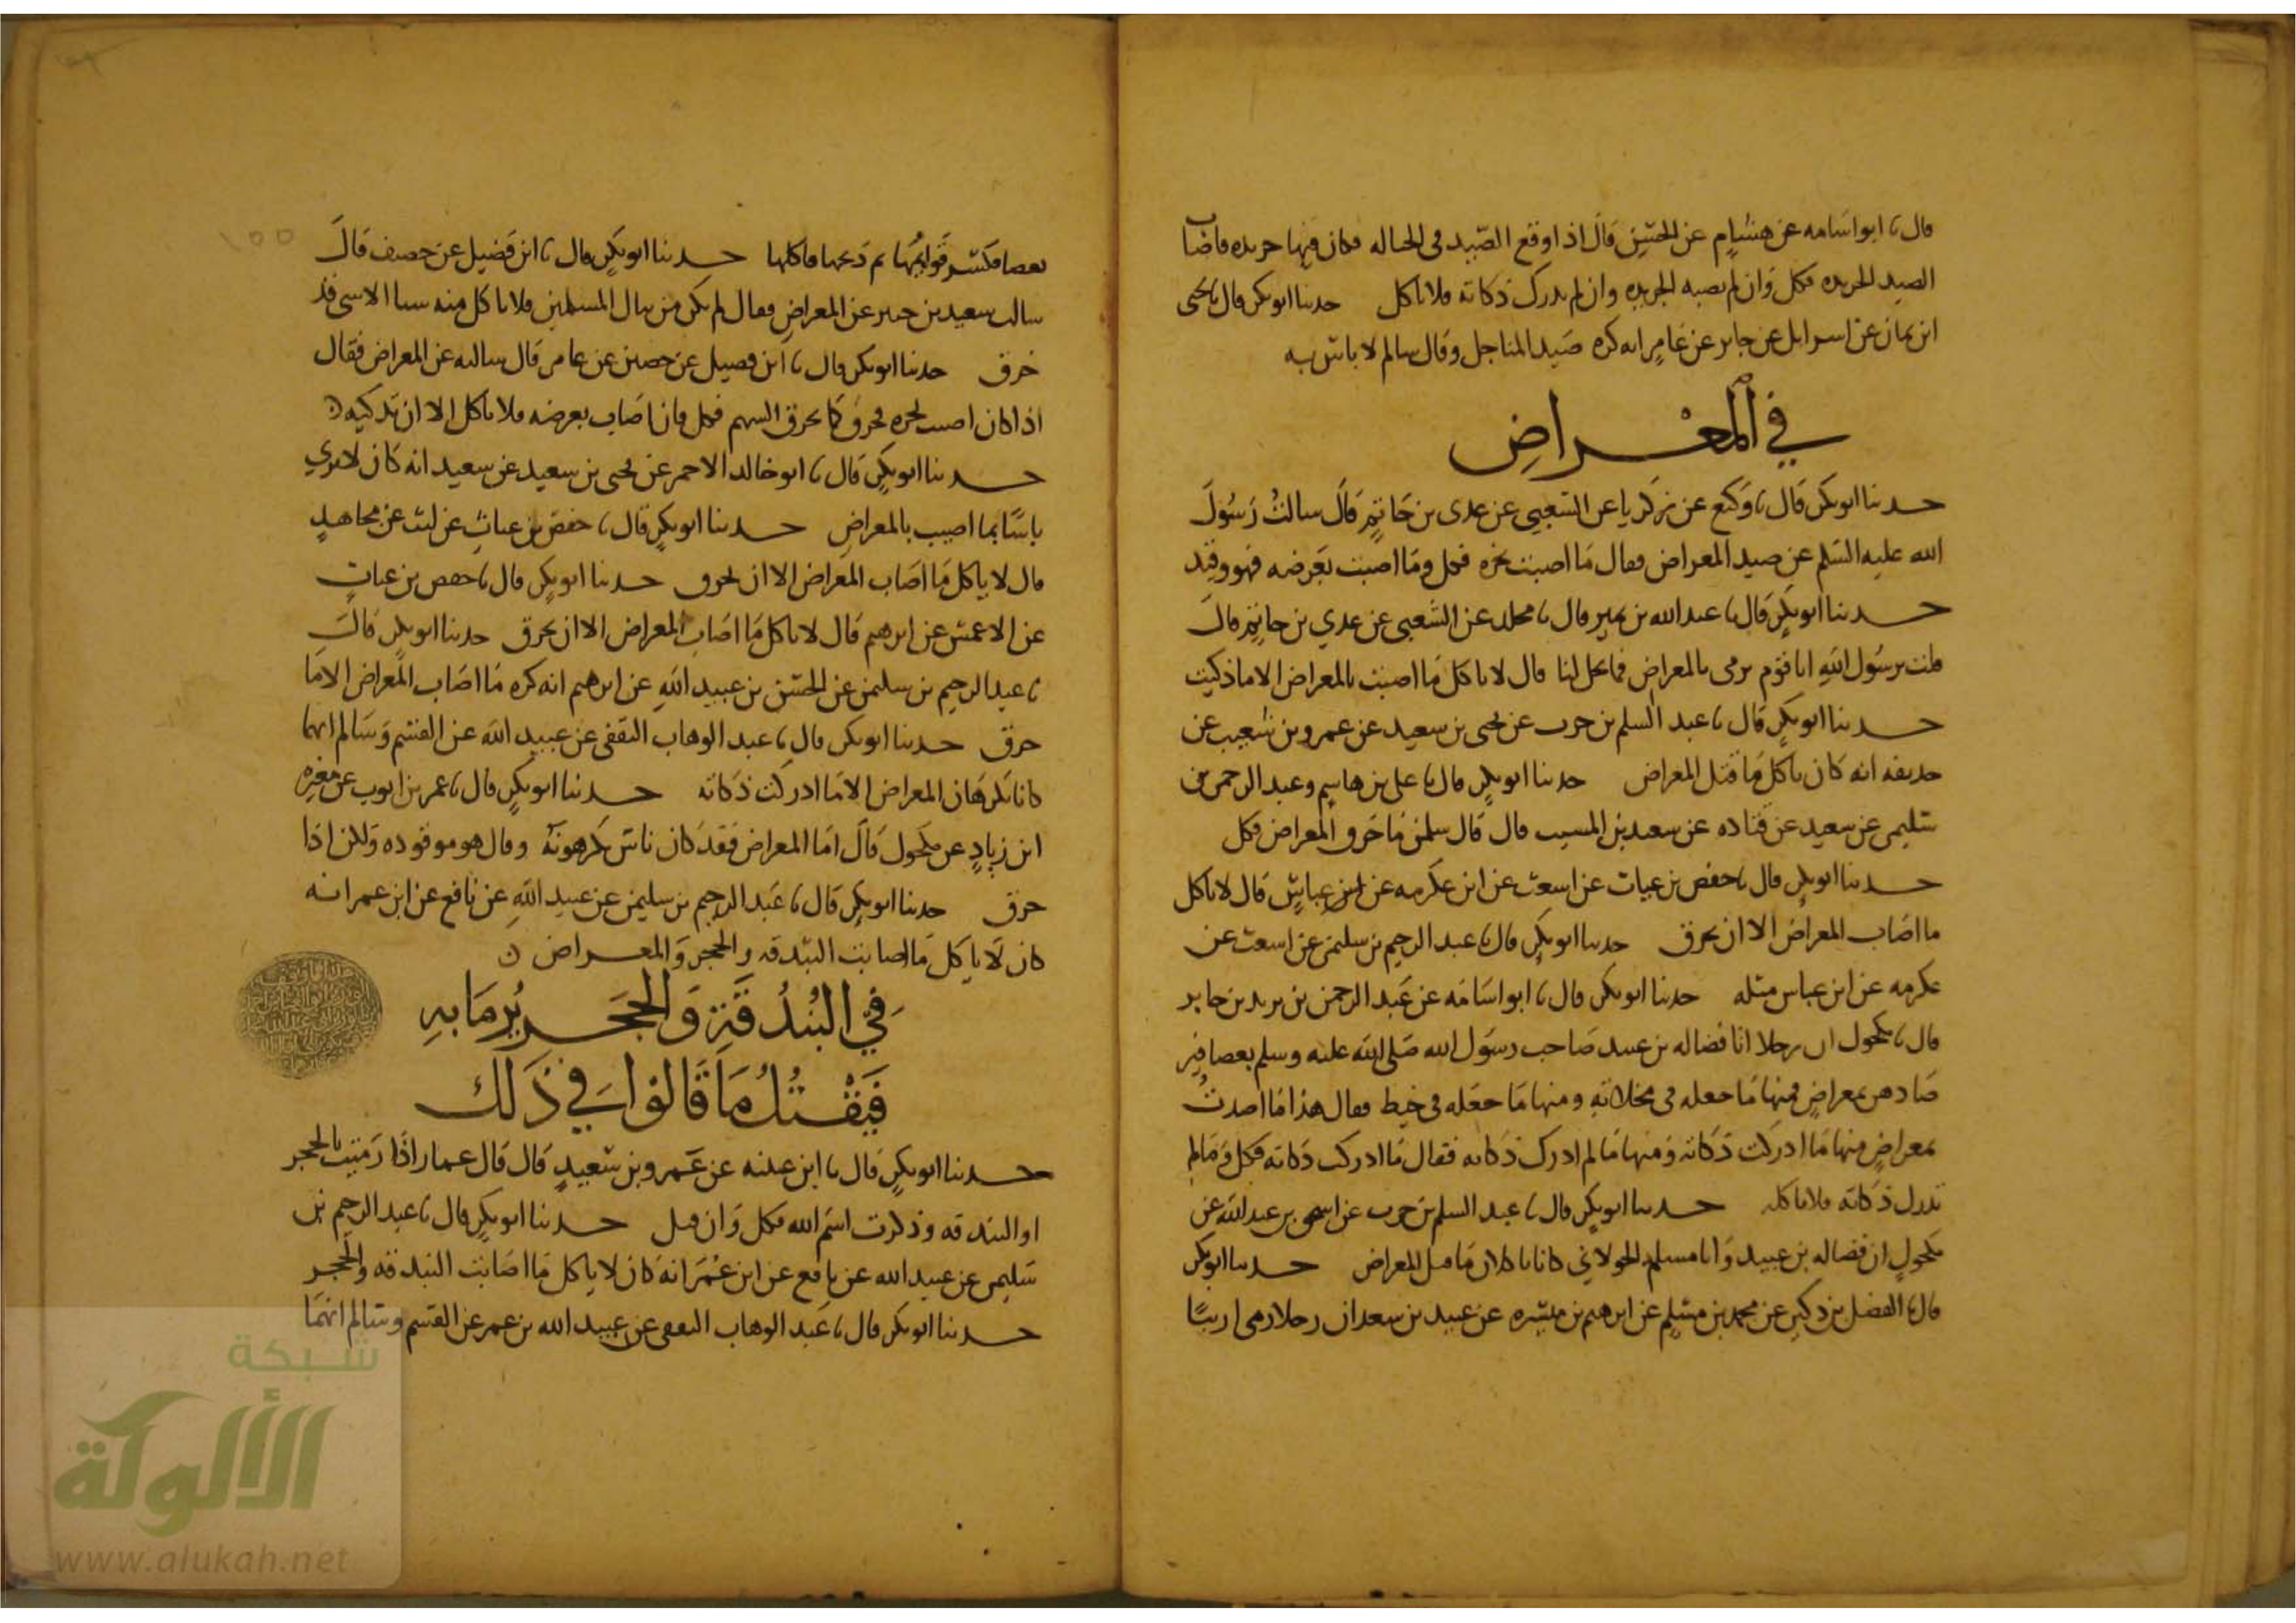 قال نا ابو اسامه عن هشام عن الحسن قال اذا وقع الصيد في الحباله فكان فيها حديده فاصاب
الصيد الحديده فكل وان لم تصبه الحديده وان لم تدرك ذكاته فلا تاكل حدثنا ابو بكر قال نا يحيى
ابن يمان عن اسرائيل عن جابر عن عامر انه كره صيد المناجل وقال سالم لا باس به
في المعراض
حدثنا ابو بكر قال نا وكيع عن زكريا عن الشعبي عن عدي بن حاتم قال سالت رسول
الله عليه السلم عن صيد المعراض فقال ما اصبت بحده فكل وما اصبت بعرضه فهو وقيذ
حدثنا ابو بكر قال نا عبد الله بن نمير قال نا مجالد عن الشعبي عن عدي بن حاتم قال
قلت يرسول الله انا قوم نرمي بالمعراض فما يحل لنا قال لا تاكل ما اصبت بالمعراض الا ما ذكيت
حدثنا ابو بكر قال نا عبد السلم بن حرب عن يحيى بن سعيد عن عمرو بن شعيب عن
حذيفه انه كان ياكل ما قتل المعراض حدثنا ابو بكر قال نا علي بن هاشم وعبد الرحمن بن
سليمن عن سعيد عن قتاده عن سعيد بن المسيب قال قال سلمن ما خرق المعراض فكل
حدثنا ابو بكر قال نا حفص بن غياث عن اشعث عن ابن عكرمه عن ابن عباس قال لا تاكل
ما اصاب المعراض الا ان يخرق حدثنا ابو بكر قال نا عبد الرحيم بن سليمن عن اشعث عن
عكرمه عن ابن عباس مثله حدثنا ابو بكر قال نا ابو اسامه عن عبد الرحمن بن يزيد بن جابر
قال نا مكحول ان رجلا اتا فضاله بن عبيد صاحب رسول الله صلى الله عليه وسلم بعصافير
صادهن بمعراض فمنها ما جعله في مخلاته ومنها ما جعله في خيط فقال هذا ما اصدت
بمعراض منها ما ادركت ذكاته ومنها ما لم ادرك ذكاته فقال ما ادركت ذكاته فكل وما لم
تدرك ذكاته فلا تاكله حدثنا ابو بكر قال نا عبد السلم بن حرب عن اسحق بن عبد الله عن
مكحول ان فضاله بن عبيد وابا مسلم الخولاني كانا ياكلان ما قتل المعراض حدثنا ابو بكر
قال نا الفضل بن دكين عن محمد بن مسلم عن ابرهيم بن ميسره عن عبيد بن سعد ان رجلا رمى ارنبا
بعصا فكسر قوائمها ثم ذبحها فاكلها حدثنا ابو بكر قال نا ابن فضيل عن حصين قال
سالت سعيد بن جبير عن المعراض فقال لم يكن من نبال المسلمين فلا تاكل منه شيا الا شي قد
خرق حدثنا ابو بكر قال نا ابن فضيل عن حصين عن عامر قال سالته عن المعراض فقال
اذا كان اصبت بحده فخرق كما يخرق السهم فكل فان اصاب بعرضه فلا تاكل الا ان تذكيه
حدثنا ابو بكر قال نا ابو خالد الاحمر عن يحيى بن سعيد عن سعيد انه كان لا يرى
باسا بما اصيب بالمعراض حدثنا ابو بكر قال نا حفص بن غياث عن ليث عن مجاهد
قال لا ياكل ما اصاب المعراض الا ان يخرق حدثنا ابو بكر قال نا حفص بن غياث
عن الاعمش عن ابرهيم قال لا تاكل ما اصاب المعراض الا ان يخرق حدثنا ابو بكر قال
نا عبد الرحيم بن سليمن عن الحسن بن عبيد الله عن ابرهيم انه كره ما اصاب المعراض الا ما
خرق حدثنا ابو بكر قال نا عبد الوهاب الثقفي عن عبيد الله عن القسم وسالم انهما
كانا يكرهان المعراض الا ما ادركت ذكاته حدثنا ابو بكر قال نا عمر بن ايوب عن مغيره
ابن زياد عن مكحول قال اما المعراض فقد كان ناس يكرهونه وقال هو موقوذه ولكن اذا
خرق حدثنا ابو بكر قال نا عبد الرحيم بن سليمن عن عبيد الله عن نافع عن ابن عمر انه
كان لا ياكل ما اصابت البندقه والحجر والمعراض
في البندقة والحجر يرما به
فيقتل ما قالوا في ذلك
حدثنا ابو بكر قال نا ابن عيينه عن عمرو بن سعيد قال قال عمار اذا رميت بالحجر
او البندقه وذكرت اسم الله فكل وان قتل حدثنا ابو بكر قال نا عبد الرحيم بن
سليمن عن عبيد الله عن نافع عن ابن عمر انه كان لا ياكل ما اصابت البندقه والحجر
حدثنا ابو بكر قال نا عبد الوهاب الثقفي عن عبيد الله بن عمر عن القسم وسالم انهما
شبكة
الألوكة
www.alukah.net